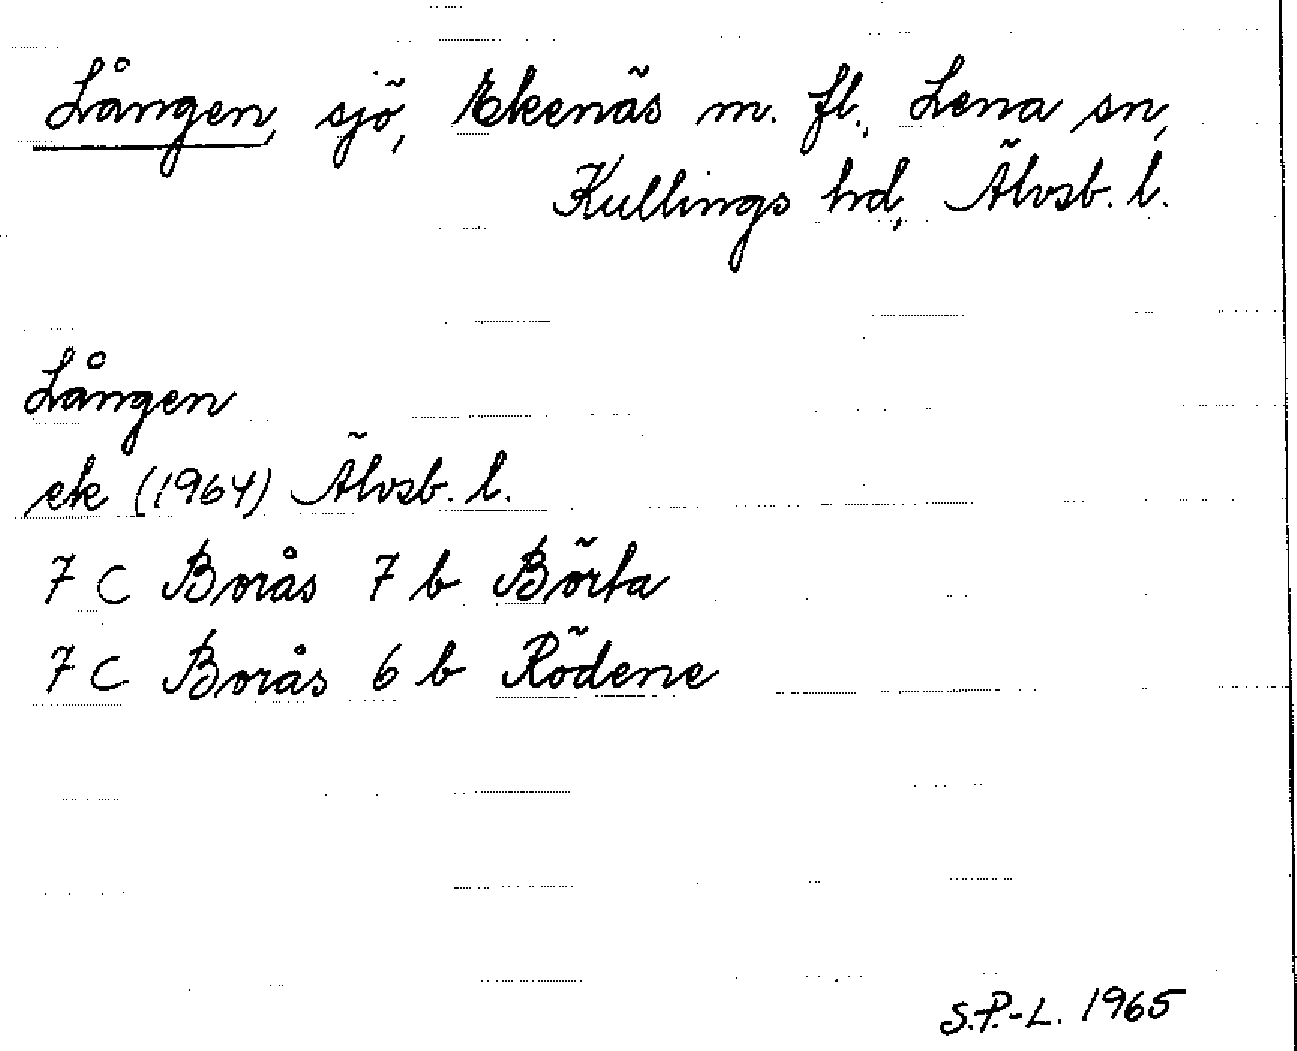 Lången, sjö, Ekenäs m. fl., Lena sn,
Kullings hd, Älvsb. l.
Lången
ek (1964) Älvsb. l.
7 C Borås 7 b Börta
7 C Borås 6 b Rödene
S.P.-L. 1965